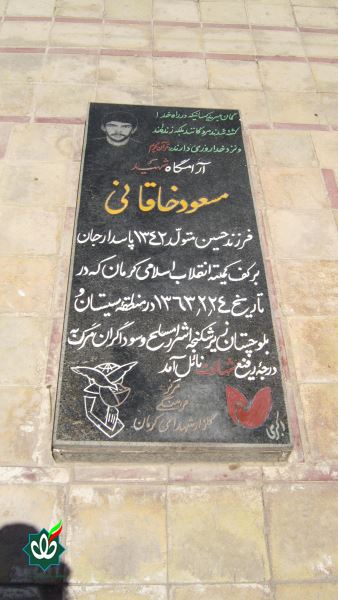 گمان مبرید کسانیکه در راه خدا
کشته شدند مردگانند بلکه زنده‌اند
و نزد خدا روزی دارند. قرآن کریم
آرامگاه شهید
مسعود خاقانی
فرزند حسین متولد ۱۳۴۲ پاسدار جان
بر کف کمیته انقلاب اسلامی کرمان که در
تاریخ ۱۳۶۳/۲/۲۴ در منطقه سیستان و
بلوچستان زیر شکنجه اشرار مسلح و سوداگران مرگ به
درجه رفیع شهادت نائل آمد
گلزار شهدای کرمان